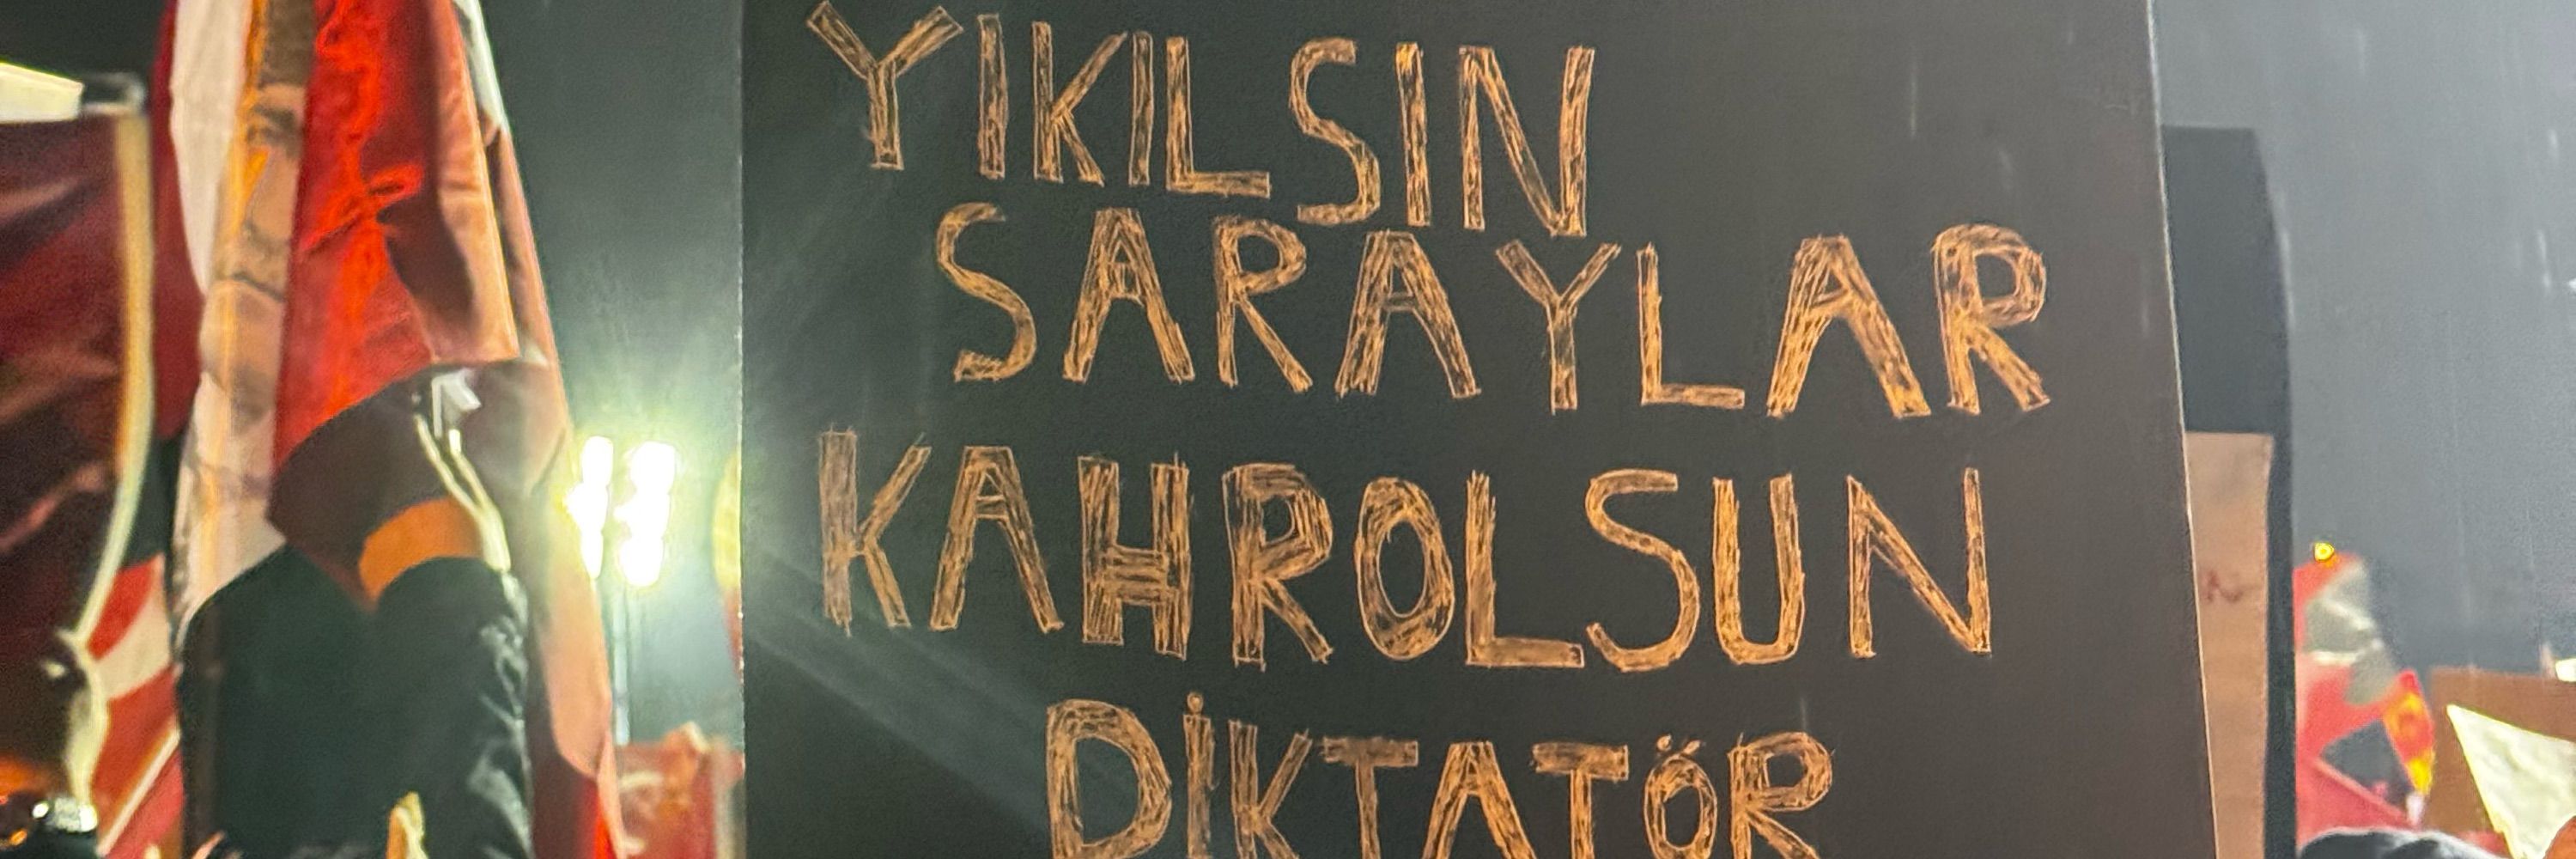 YIKILSIN
SARAYLAR
KAHROLSUN
DİKTATÖR